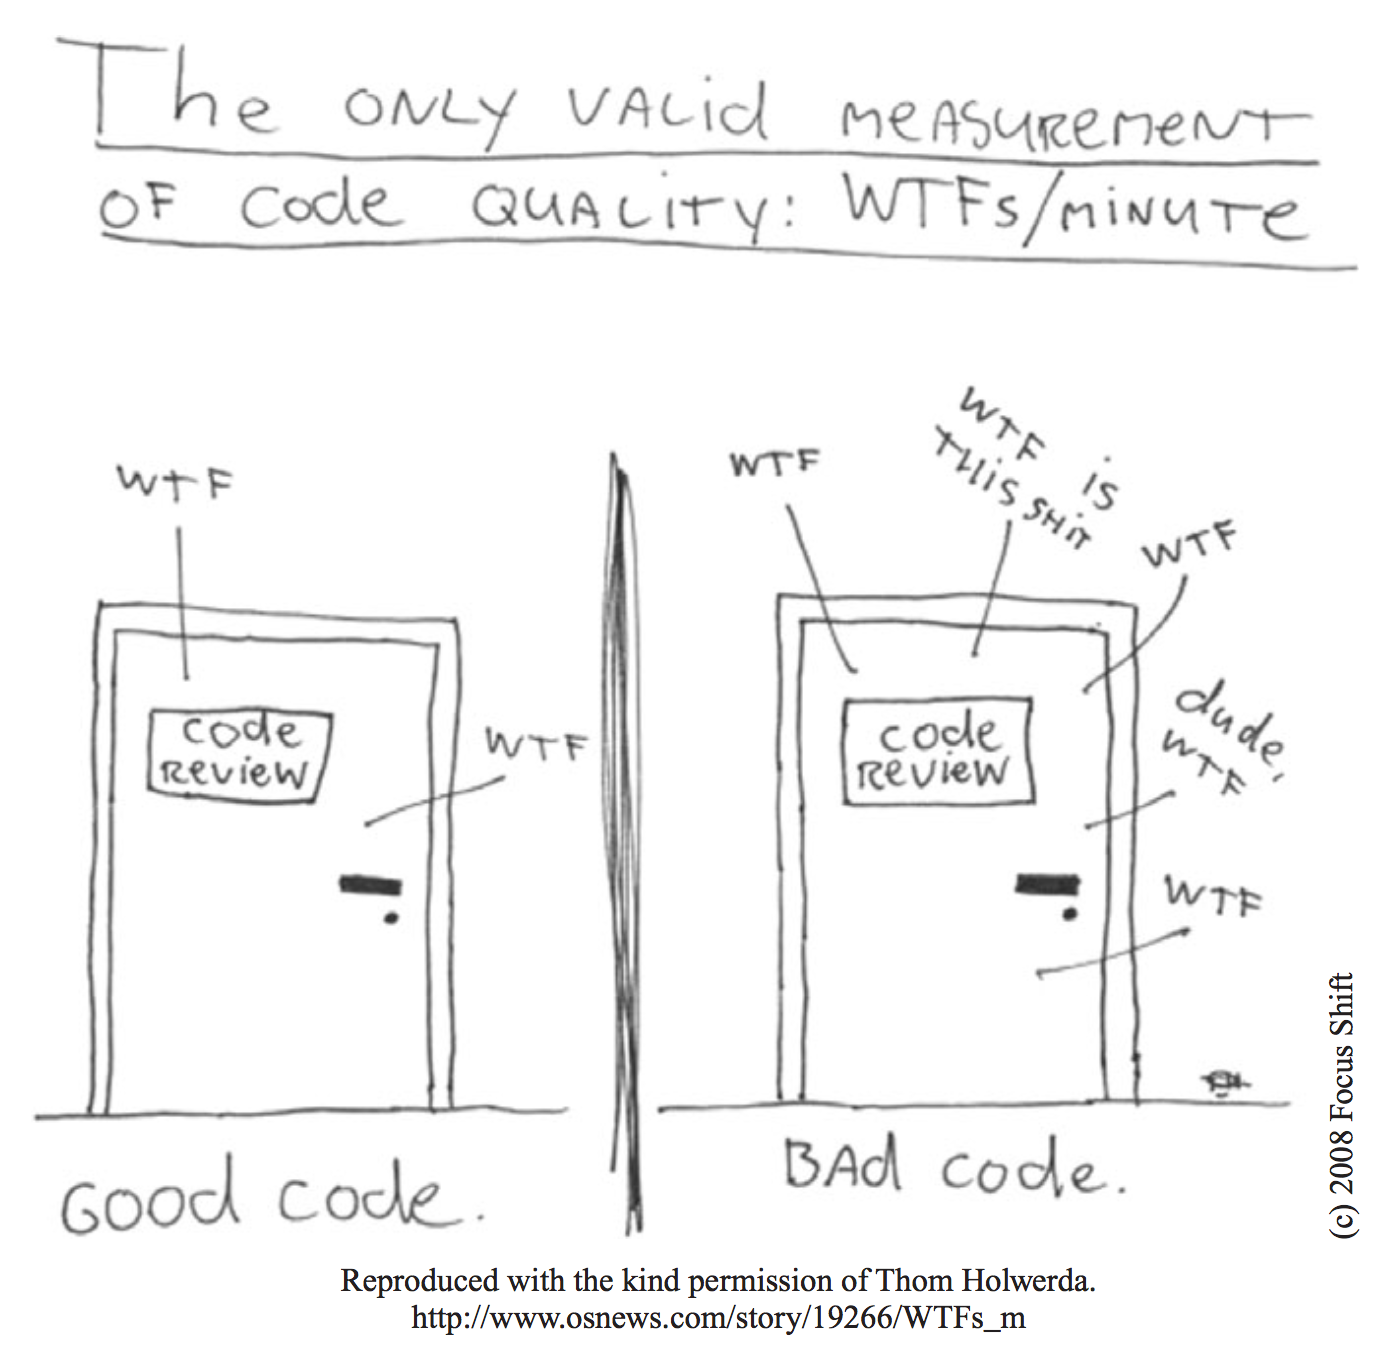 The ONLY VALid MEASUREMENT
OF Code QUALITY: WTFs/MINUTE
WTF
code
REVIEW
WTF
GOOD code.
WTF
WTF is
THiS SHiT
WTF
code
REVIEW
dude,
WTF
WTF
BAd code.
(c) 2008 Focus Shift
Reproduced with the kind permission of Thom Holwerda.
http://www.osnews.com/story/19266/WTFs_m